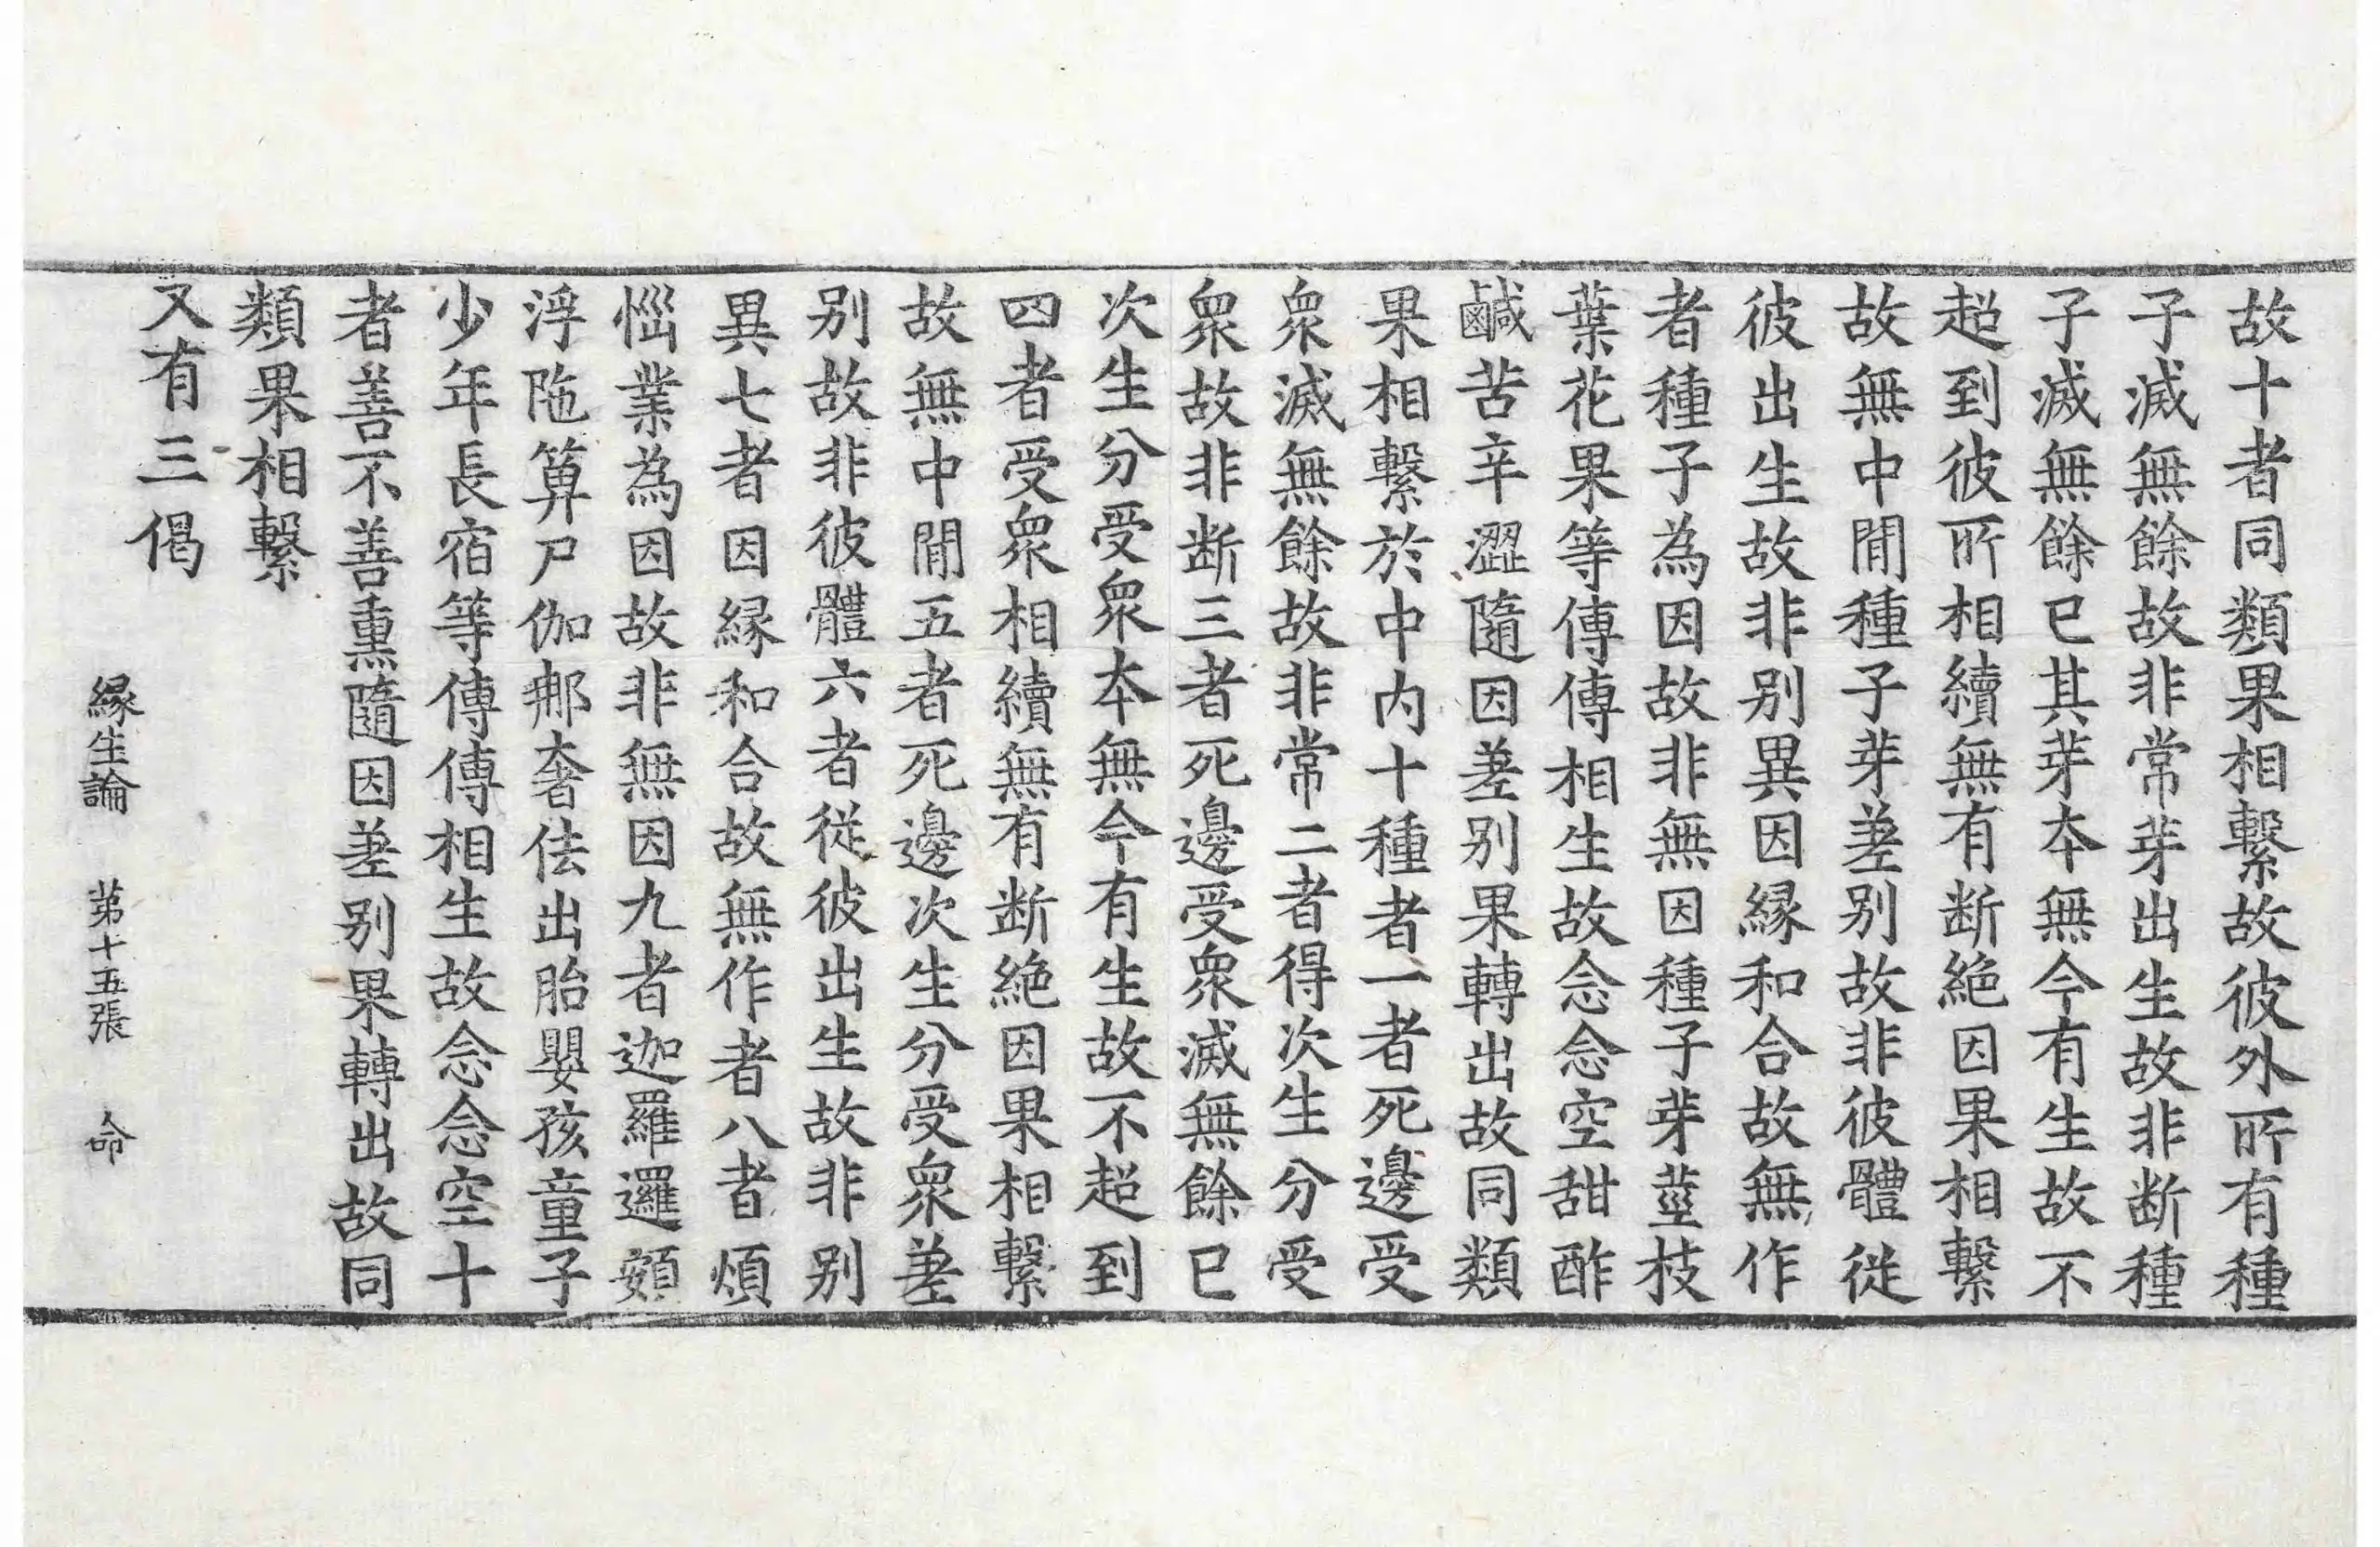 故十者同類果相繫故彼外所有種
子滅無餘故非常芽出生故非断種
子滅無餘已其芽本無今有生故不
超到彼所相續無有断絶因果相繫
故無中閒種子芽差别故非彼體從
彼出生故非别異因緣和合故無作
者種子為因故非無因種子芽莖枝
葉花果等傳傳相生故念念空甜酢
鹹苦辛澀隨因差别果轉出故同類
果相繫於中内十種者一者死邊受
衆滅無餘故非常二者得次生分受
衆故非断三者死邊受衆滅無餘已
次生分受衆本無今有生故不超到
四者受衆相續無有断絶因果相繫
故無中閒五者死邊次生分受衆差
别故非彼體六者從彼出生故非别
異七者因緣和合故無作者八者煩
惱業為因故非無因九者迦羅邏頞
浮陁箄尸伽郍奢佉出胎嬰孩童子
少年長宿等傳傳相生故念念空十
者善不善熏隨因差别果轉出故同
類果相繫
又有三偈
緣生論 第十五張 命